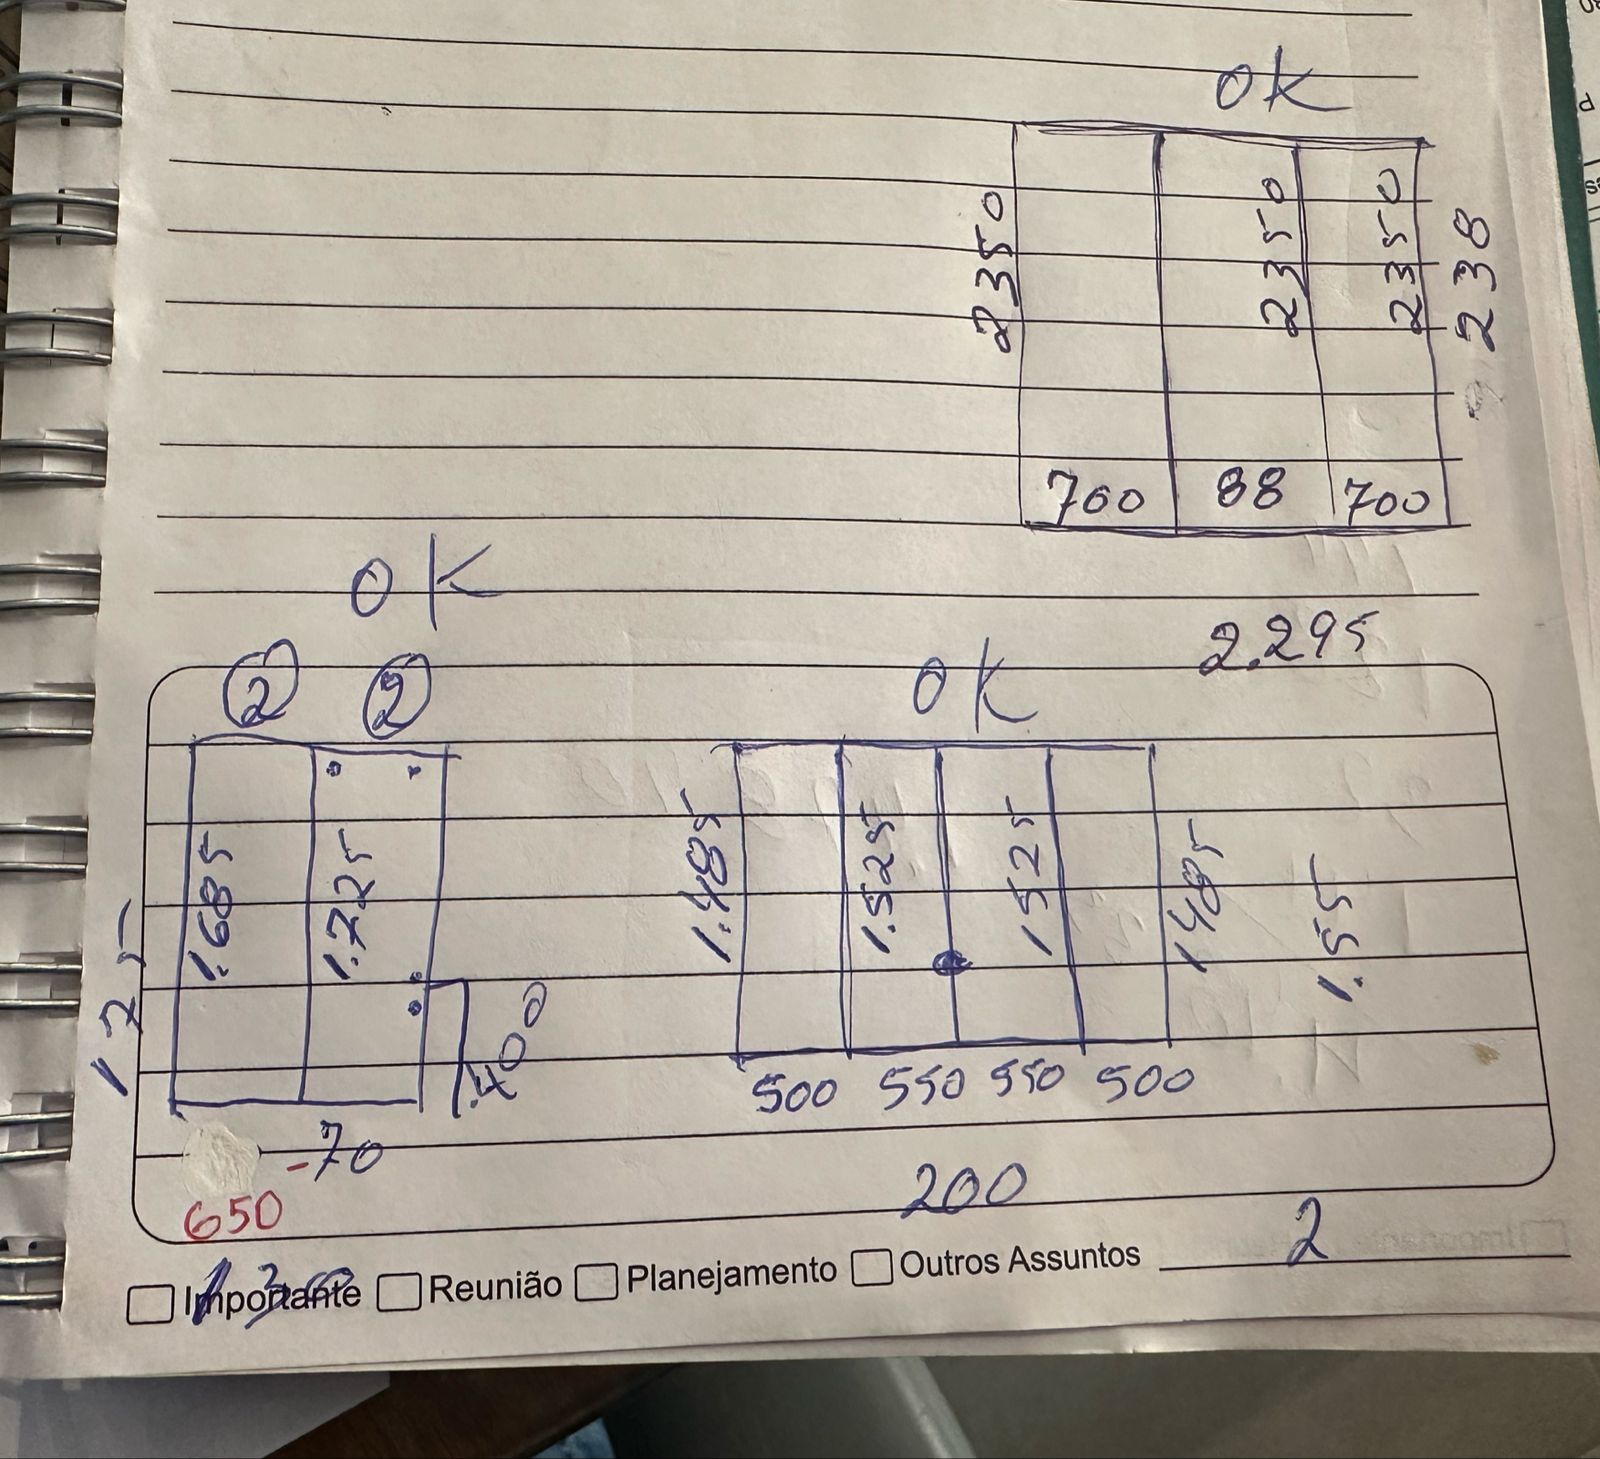 OK
2350
2350
2350
238
700
88
700
OK
2.295
2
2
OK
1.685
1.725
1.75
1.400
1.485
1.525
1.525
1.485
1.55
500 550 550 500
-70
650
200
2
Importante Reunião Planejamento Outros Assuntos